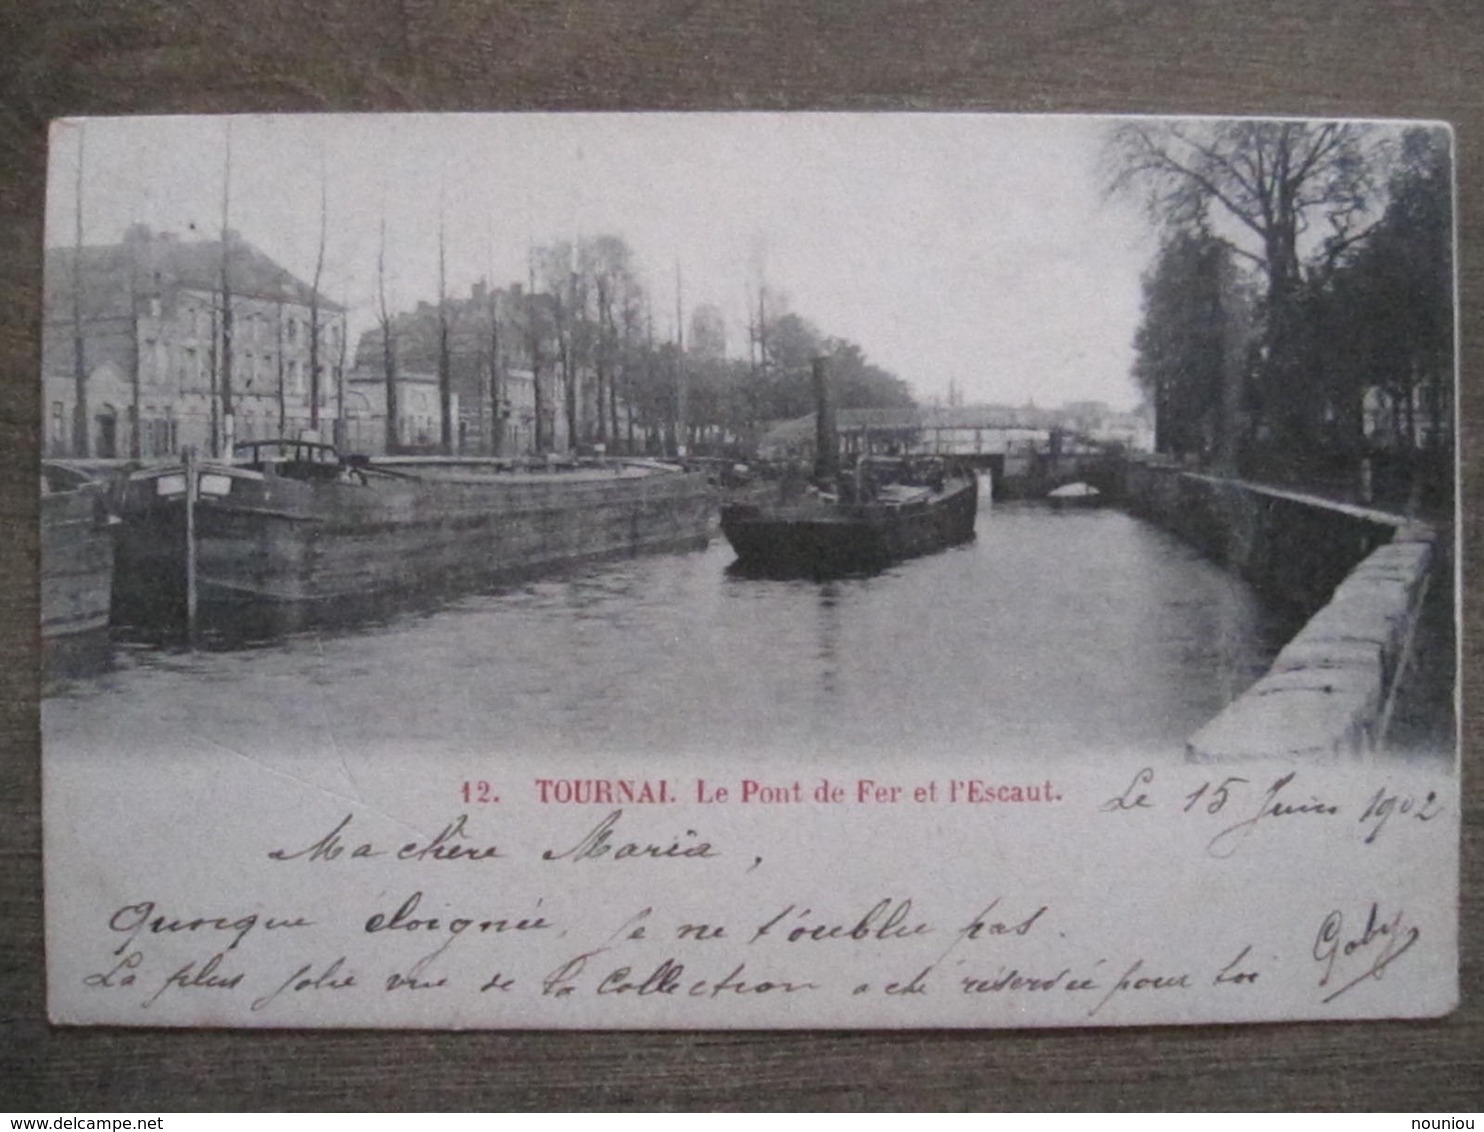 12. TOURNAI. Le Pont de Fer et l'Escaut.
Le 15 Juin 1902
Ma chère Maria,
Quoique éloignée, je ne t'oublie pas.
La plus jolie vue de ta collection a été réservée pour toi
Gaby
nouniou